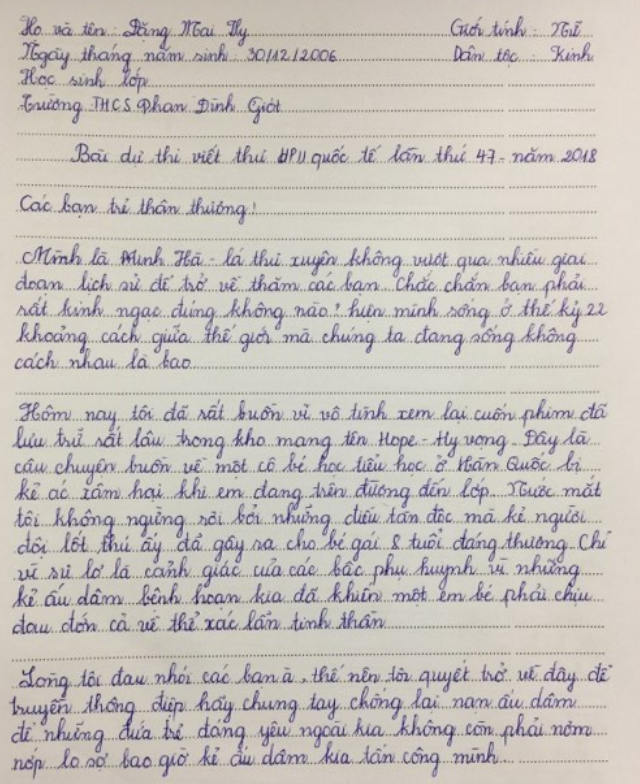 Họ và tên: Đặng Mai Vy Giới tính: Nữ
Ngày tháng năm sinh: 30/12/2006 Dân tộc: Kinh
Học sinh lớp
Trường THCS Phan Đình Giót
Bài dự thi viết thư UPU quốc tế lần thứ 47 - năm 2018
Các bạn trẻ thân thương!
Mình là Minh Hà - lá thư xuyên không vượt qua nhiều giai
đoạn lịch sử để trở về thăm các bạn. Chắc chắn bạn phải
rất kinh ngạc đúng không nào? hiện mình sống ở thế kỷ 22
khoảng cách giữa thế giới mà chúng ta đang sống không
cách nhau là bao
Hôm nay tôi đã rất buồn vì vô tình xem lại cuốn phim đã
lưu trữ rất lâu trong kho mang tên Hope - Hy vọng. Đây là
câu chuyện buồn về một cô bé học tiểu học ở Hàn Quốc bị
kẻ ác xâm hại khi em đang trên đường đến lớp. Nước mắt
tôi không ngừng rơi bởi những điều tàn độc mà kẻ người
đội lốt thú ấy đã gây ra cho bé gái 8 tuổi đáng thương. Chỉ
vì sự lơ là cảnh giác của các bậc phụ huynh vì những
kẻ ấu dâm bệnh hoạn kia đã khiến một em bé phải chịu
đau đớn cả về thể xác lẫn tinh thần
Lòng tôi đau nhói các bạn à, thế nên tôi quyết trở về đây để
truyền thông điệp hãy chung tay chống lại nạn ấu dâm
để những đứa trẻ đáng yêu ngoài kia không còn phải nơm
nớp lo sợ bao giờ kẻ ấu dâm kia tấn công mình